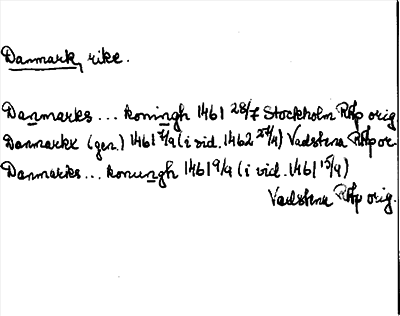 Danmark, rike.
Danmarks... koningh 1461 28/7 Stockholm RAp orig
Danmarkx (gen.) 1461 7/9 (i vid. 1462 27/4) Vadstena RAp or.
Danmarks... konungh 1461 9/9 (i vid. 1461 15/9)
Vadstena RAp orig.